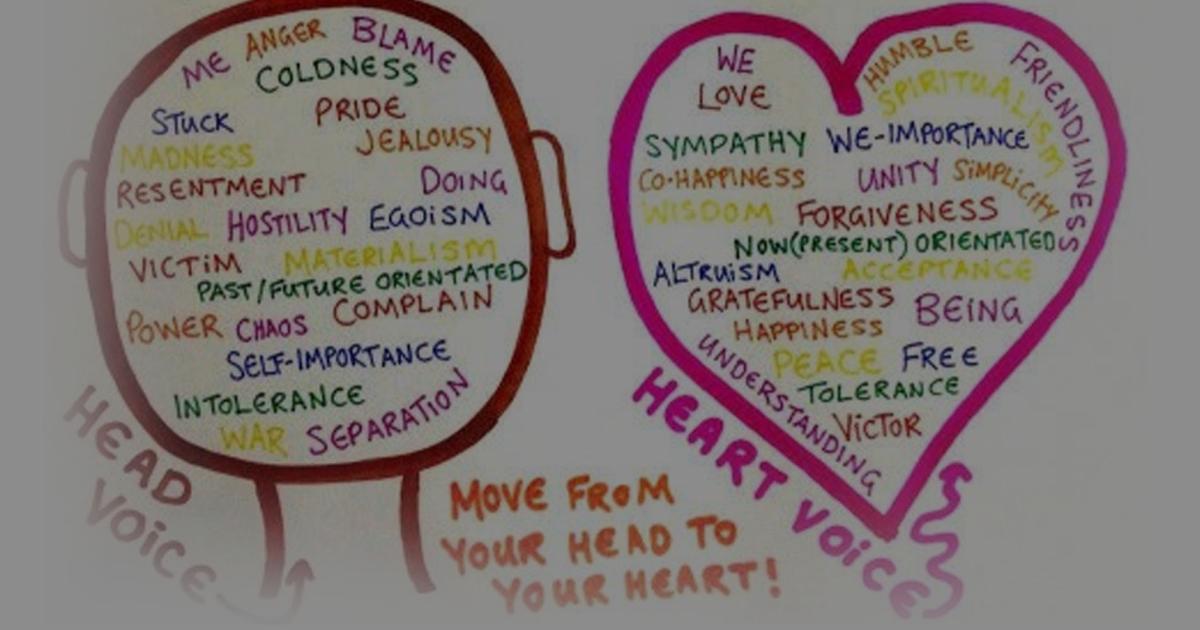 ME ANGER BLAME
COLDNESS
STUCK PRIDE
MADNESS JEALOUSY
RESENTMENT DOING
DENIAL HOSTILITY EGOiSM
VICTiM MATERIALiSM
PAST/FUTURE ORIENTATED
POWER CHAOS COMPLAIN
SELF-IMPORTANCE
INTOLERANCE
WAR SEPARATION
HEAD
VOiCE
WE
LOVE
HUMBLE
SPIRITUALISM
FRIENDLINESS
SYMPATHY WE-IMPORTANCE
CO-HAPPINESS UNITY SiMPLiCiTY
WISDOM FORGIVENESS
NOW(PRESENT) ORIENTATED
ALTRUiSM ACCEPTANCE
GRATEFULNESS BEING
HAPPINESS
PEACE FREE
UNDERSTANDING
TOLERANCE
VICTOR
HEART VOiCE
MOVE FROM
YOUR HEAD TO
YOUR HEART!